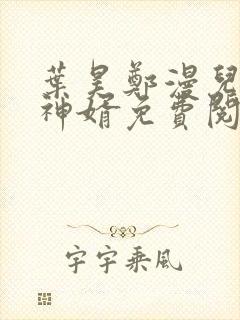 葉昊鄭漫兒
神婿免費閱
宇宇乘風